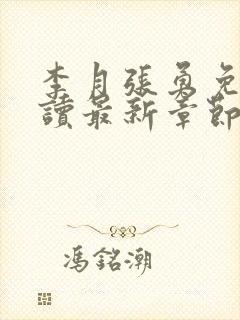 李月張勇免
讀最新章節
馮銘潮